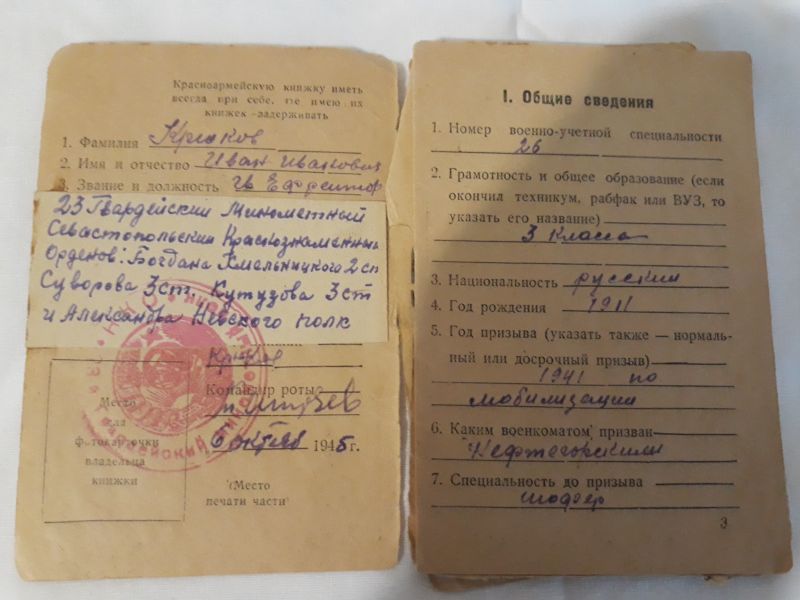 Красноармейскую книжку иметь
всегда при себе. Не имею их
книжек -задерживать
1. Фамилия Крюков
2. Имя и отчество Иван Иванович
3. Звание и должность Гв Ефрейтор
23 Гвардейский Минометный
Севастопольский Краснознаменный
Орденов: Богдана Хмельницкого 2 ст
Суворова 3 ст. Кутузова 3 ст
и Александра Невского полк
Крюков
Командир роты
6 октяб 1945г.
Место
для
фотокарточки
владельца
книжки
(Место
печати части)
I. Общие сведения
1. Номер военно-учетной специальности
26
2. Грамотность и общее образование (если
окончил техникум, рабфак или ВУЗ, то
указать его название)
3 класса
3. Национальность русский
4. Год рождения 1911
5. Год призыва (указать также — нормаль-
ный или досрочный призыв)
1941 по
мобилизации
6. Каким военкоматом призван
Нефтегорским
7. Специальность до призыва
шофер
3